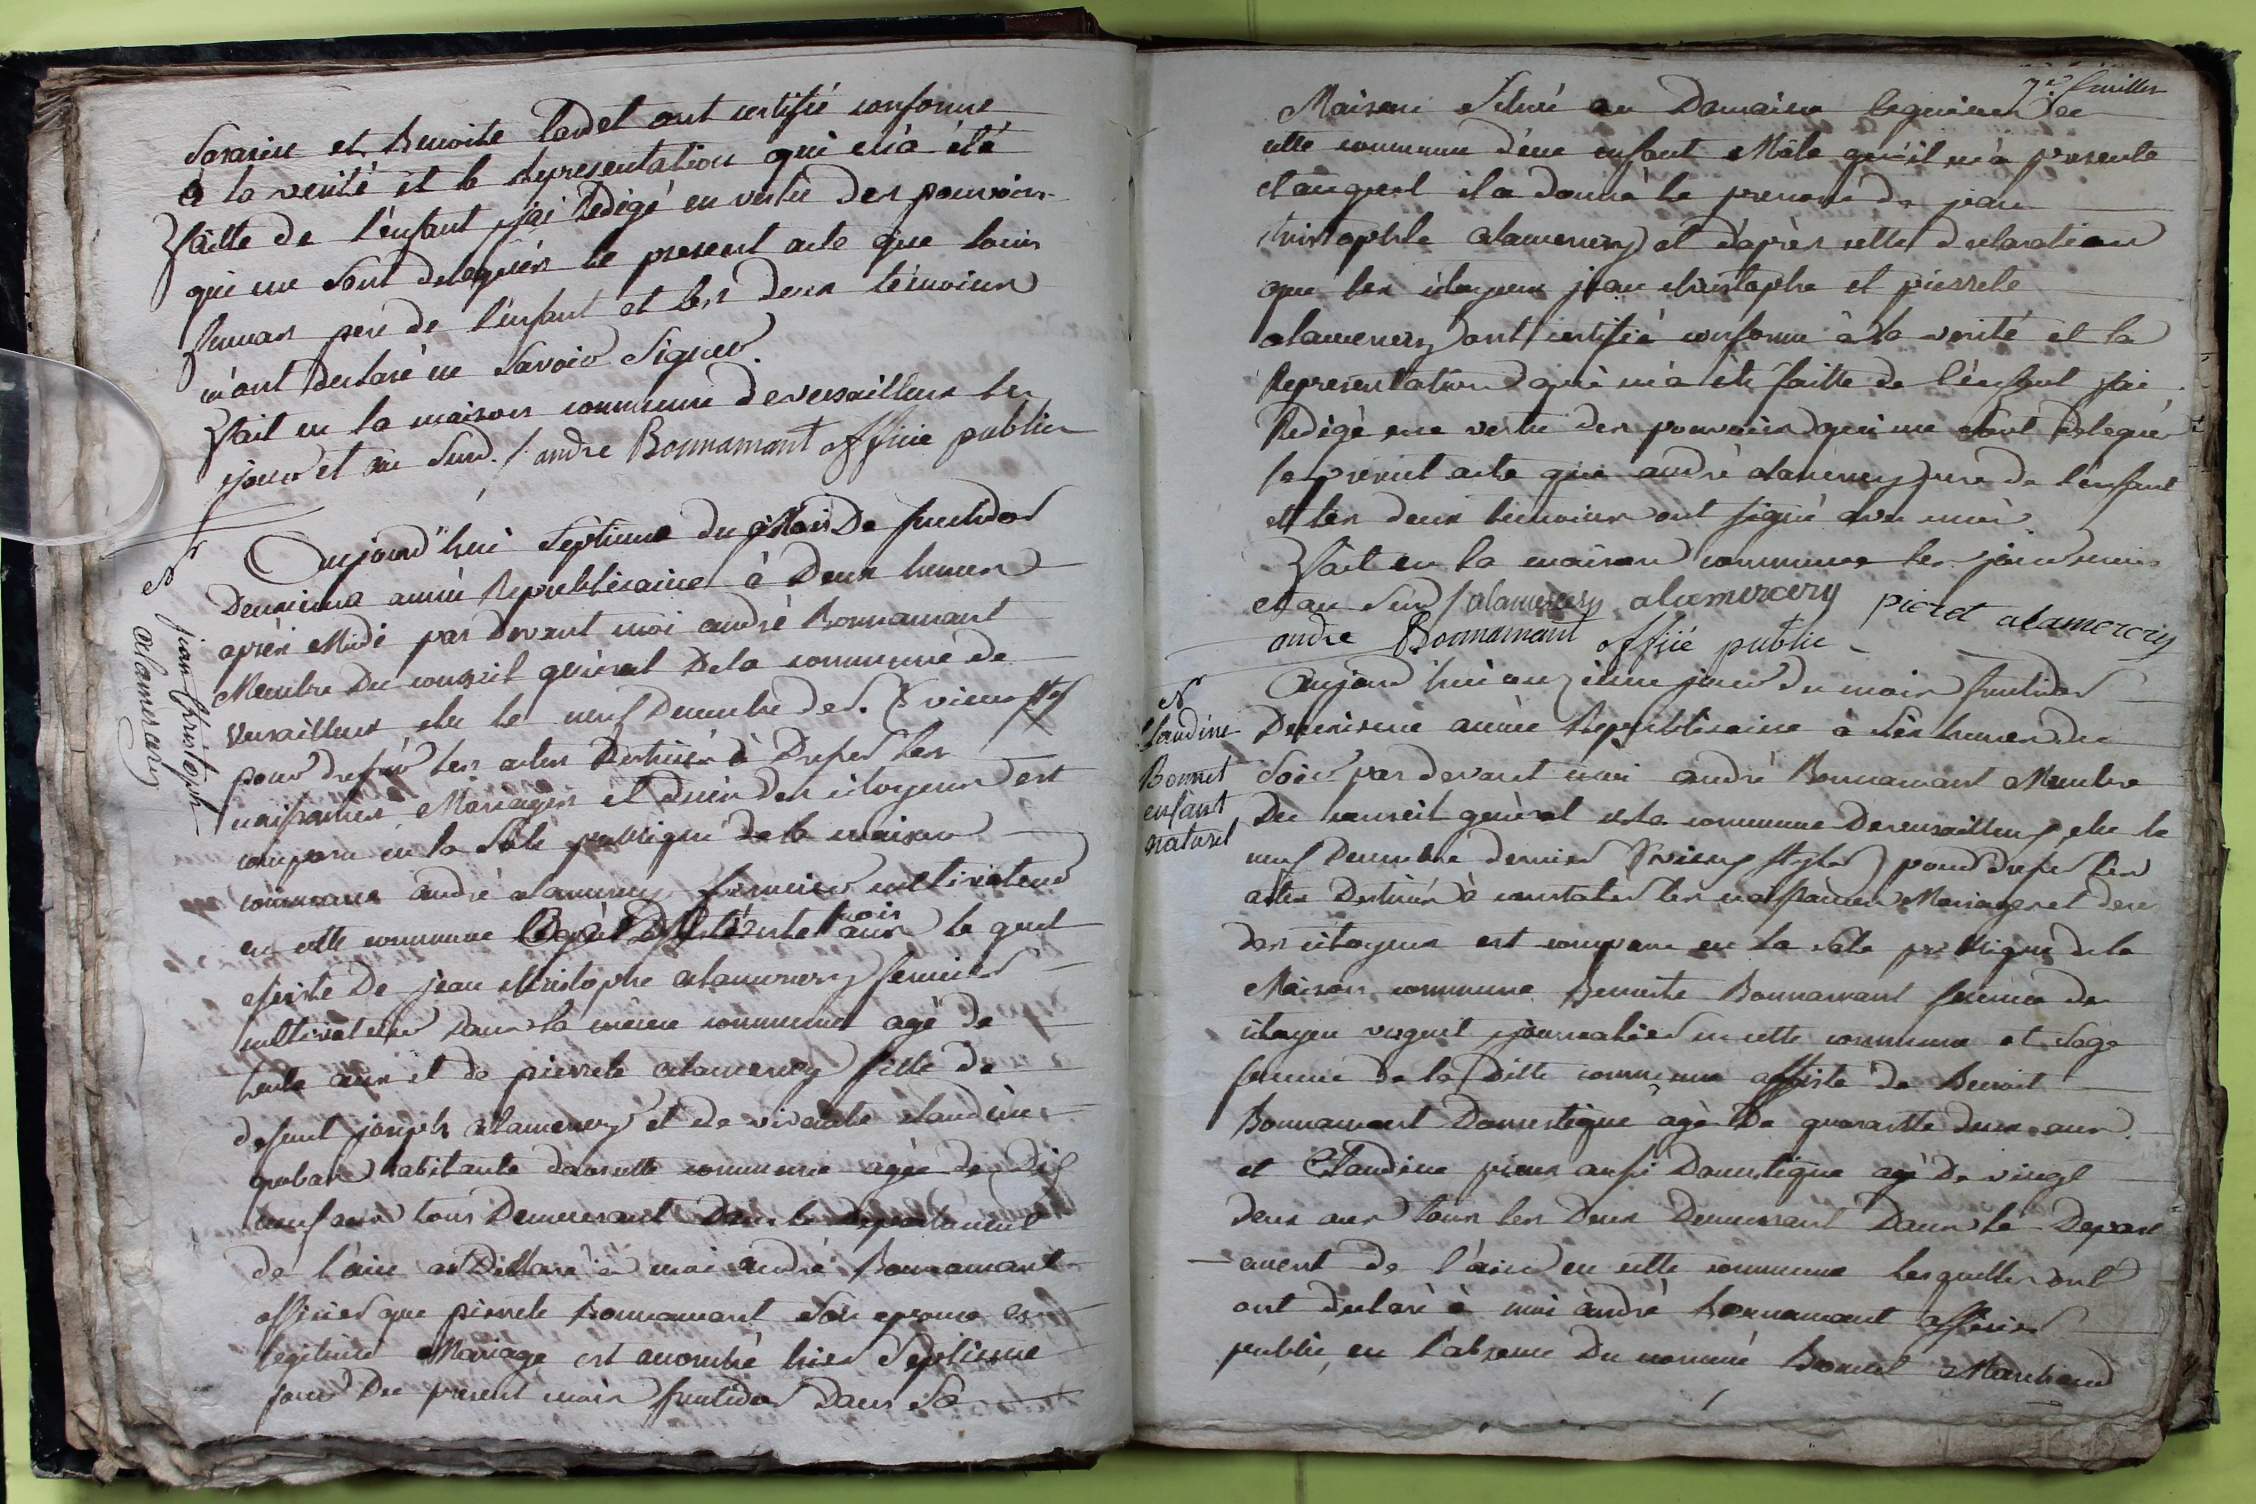 Savarin et Benoite Tardet ont certifié conforme
à la verité et la Representation qui m'à été
faitte de l'énfant j'ai Rédigé en vertu des pouvoirs
qui me sont delegués le present acte que louis
pere de l'énfant et les deux témoins
m'ont declaré ne savoir signer.
fait en la maison commune de versailleux les
jour et an sud. / andre Bonnamant officie public
Nr jean christoph
alamercery
Aujourd'hui septieme du Mois De fructidor
Deuxieme année Republicaine à Deux heures
après Midi par Devant moi andré Bonnamant
Membre Du conseil géneral De la commune de
Versailleux elu le neuf Decembre de. (vieux stil
pour dresser les actes Destinés à Dresser les
naissances Mariages et deces des citoyens est
comparu en la sale publique de la maison
commune andré alamercery fermier cultivateur
en cette commune agé De trente trois ans le quel
assisté De jean christophe alamercery fermier
cultivateur dans la même commune agé de
trente ans et de pierrete alamercery fille de
defunt joseph alamercery et de vivante claudine
habitante dans cette commune agée de Dix
neuf ans tous Demeurant Dans le Departement
de l'ain a Déclaré à moi andré Bonnamant
officier que pierrete Bonnamant son epouse en
legitime Mariage est accouché hier septieme
jour Du present mois fructidor Dans sa
7e feuillet
Maison situé au Domaine de
cette commune d'un enfant Mâle qu'il m'à presenté
et auquel il a donné le prenom de jean
christophle alamercery et d'après cette declaration
que les citoyens jean christophe et pierrete
alamercery ont certifié conforme à la verité et la
Representation qui m'à été faitte de l'énfant j'ai
Redigé en vertu Des pouvoirs qui me sont delegué
le present acte que andré alamercery pere de l'énfant
et les deux temoins ont signé avec moi
fait en la maison commune les jour mois
et an sud / alamercery alamercery pieret alamercery
andre Bonnamant officié public
Nr
Claudine
Bonnet
enfant
naturel
Aujourd'hui onzieme jour du mois fructidor
Deuxieme année Republicaine à six heures du
soir par devant moi andré Bonnamant Membre
Du conseil géneral de la commune De versailleux elu le
neuf Decembre dernier (vieux styles) pour dresser les
actes Destinés à constater les naissances Mariages et deces
des citoyens est comparu en la sale publique de la
Maison commune Benoite Bonnamant femme de
citoyen journalier en cette commune et sage
femme de la Ditte commune assisté de Benoit
Bonnamant Domestique agé De quarantte deux ans
et Claudine aussi Domestique agé De vingt
deux ans tous les Deux Demeurant Dans le Depart
ement de l'ain en cette commune lesquelles ont
ont declaré à moi andré Bonnamant officier
public, en l'absence Du nommé Bonnet Marchand